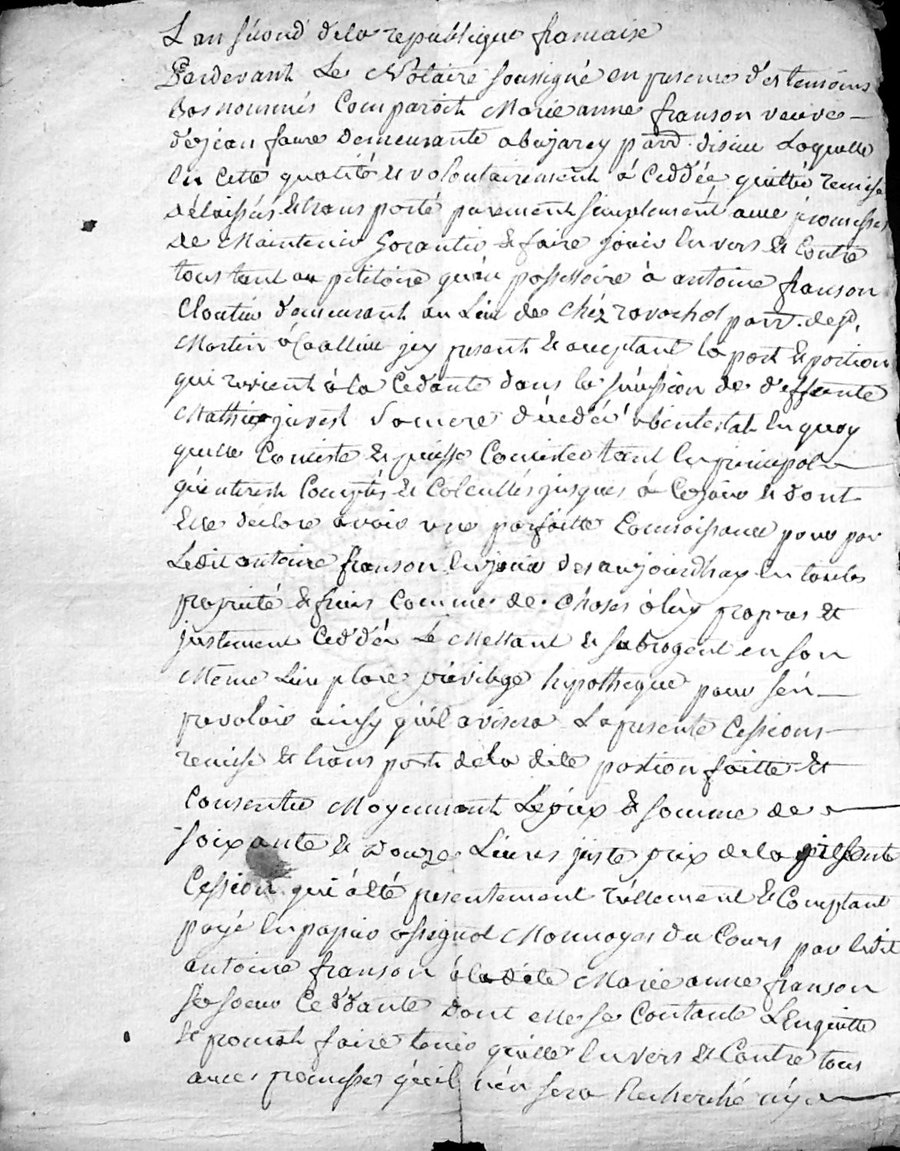 L an second dela republique francaise
Pardevant Le Notaire soussigné en presence des temoins
bas nommés Comparoit Marie anne franson veuve
dejean faure demeurante abujarey parr. disieu Laquelle
En Cette qualité et volontairement à Ceddée, quitté remise
delaissés et trans porté purement simplement avec promesses
de Maintenir Garantir et faire jouir En vers et Contre
tous tant au petitoire qu'au possessoire à antoine franson
Cloutier demeurant au Lieu de Chéz ravachol parr. de st.
Martin jcy present et acceptant la part et portion
qui revient à la Cedante dans la sucession de deffunte
Mathie sa mere décédée abintestat En quoy
quelle Consiste et puisse Consister tant En principal
qu'interest Comptés et Calcullés jusques à Cejour et dont
Elle déclare avoir une parfaitte Connaissance pour par
Ledit antoine franson En jouir des aujourdhuy En toutes
propriété et fruis Comme de Choses à luy propres et
justement Ceddée Le Mettant et subrogent en son
Même Lieu place privilege hypotheque pour s'én
prevaloir ainsy quil avisera La presente Cessions
remise et trans port dela dite portion faitte et
Consentie Moyennant Le prix et somme de
soixante et Douze Livres juste prix de la presente
Cession qui à été presentement réellement et Comptant
payé En papier assignat Monnoyes du Cours par ledit
antoine franson à la dite Marie anne franson
sa soeur Ceddante dont elle se Contante L'Enquitte
et promet faire tenir quitte En vers et Contre tous
avec promesses qu'il n'én sera Recherché ny